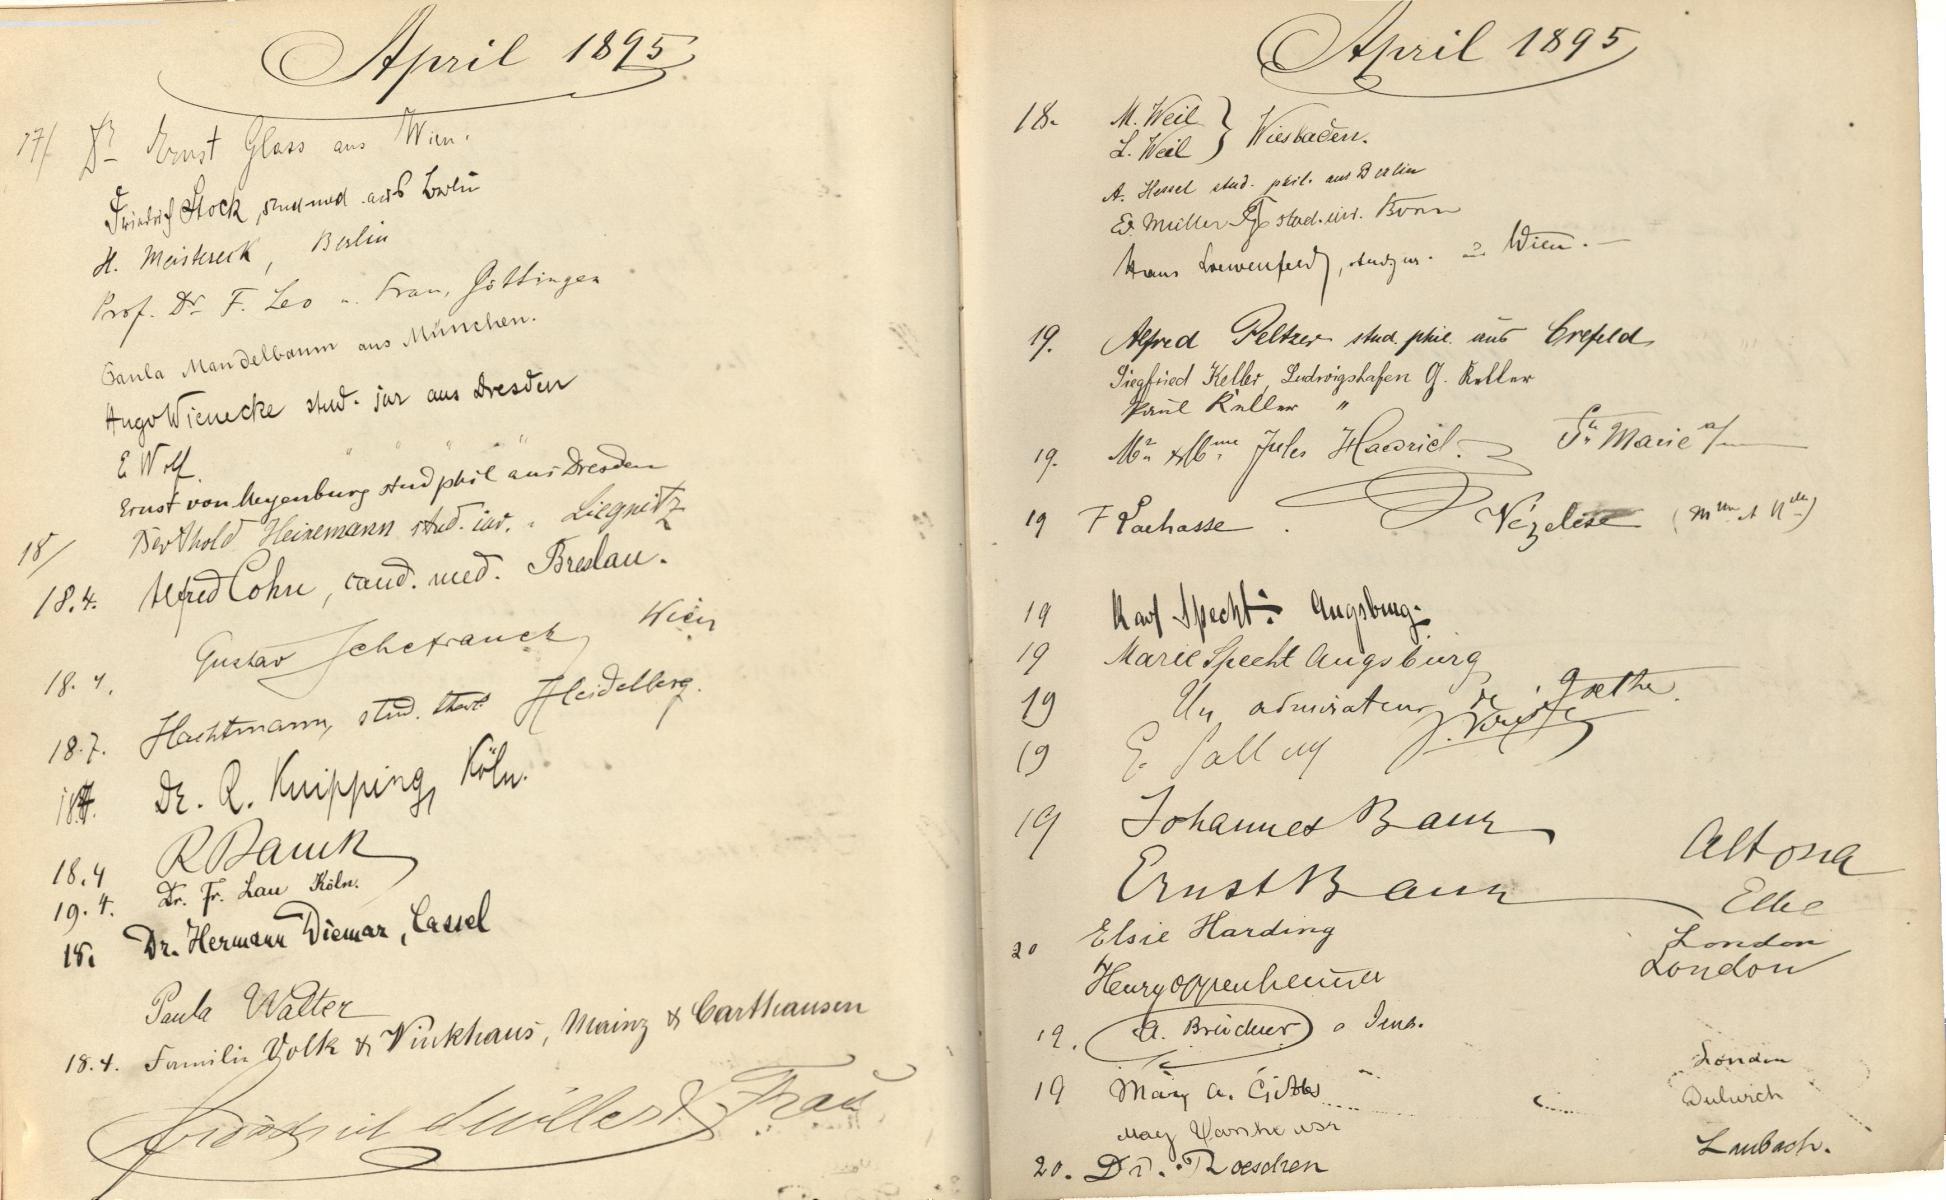 April 1895
17/ Dr Ernst Glass aus Wien.
Friedrich Stock, stud med aus Berlin
H. Meistereck, Berlin
Prof. Dr. F. Leo u. Frau, Göttingen
Paula Mandelbaum aus München.
Hugo Wienecke stud. jur aus Dresden
E Wolf " " " "
Ernst von Meyenburg stud phil aus Dresden
18/ Berthold Heinemann stud. iur. " Liegnitz
18.4. Alfred Cohn, cand. med. Breslau.
18.4. Gustav Wien
18.7. Hachtmann, stud. Heidelberg.
Dr. R. Knipping, Köln.
18.4 R Banck
19.4. Dr. Fr. Lau Köln.
18. Dr. Hermann Diemar, Cassel
Paula Walter
18.4. Familie Volk & Vinkhaus, Mainz & Carthausen
Friedrich Müller & Frau
April 1895
18. M. Weil } Wiesbaden.
L. Weil
A. Hessel stud. phil. aus Berlin
Ed. Müller stud. iur. Bonn
Hans Loewenfeld, Wien.
19. Alfred Peltzer stud. phil. aus Crefeld
Siegfried Keller, Ludwigshafen G. Keller
Paul Keller "
19. Mr & Mme Jules Ste Marie a/m
19 F Lachasse Vézelise
19 Karl Specht Augsburg.
19 Marie Specht Augsburg
19 Un admirateur de Goethe.
19 E.
19 Johannes Baur Altona
Ernst Baur Elbe
20 Elsie Harding London
Henry Oppenheimer London
19. A. Brückner Jena.
19 Mary A. Gibbs London
May Dulwich
20. Dr. Roeschen Laubach.